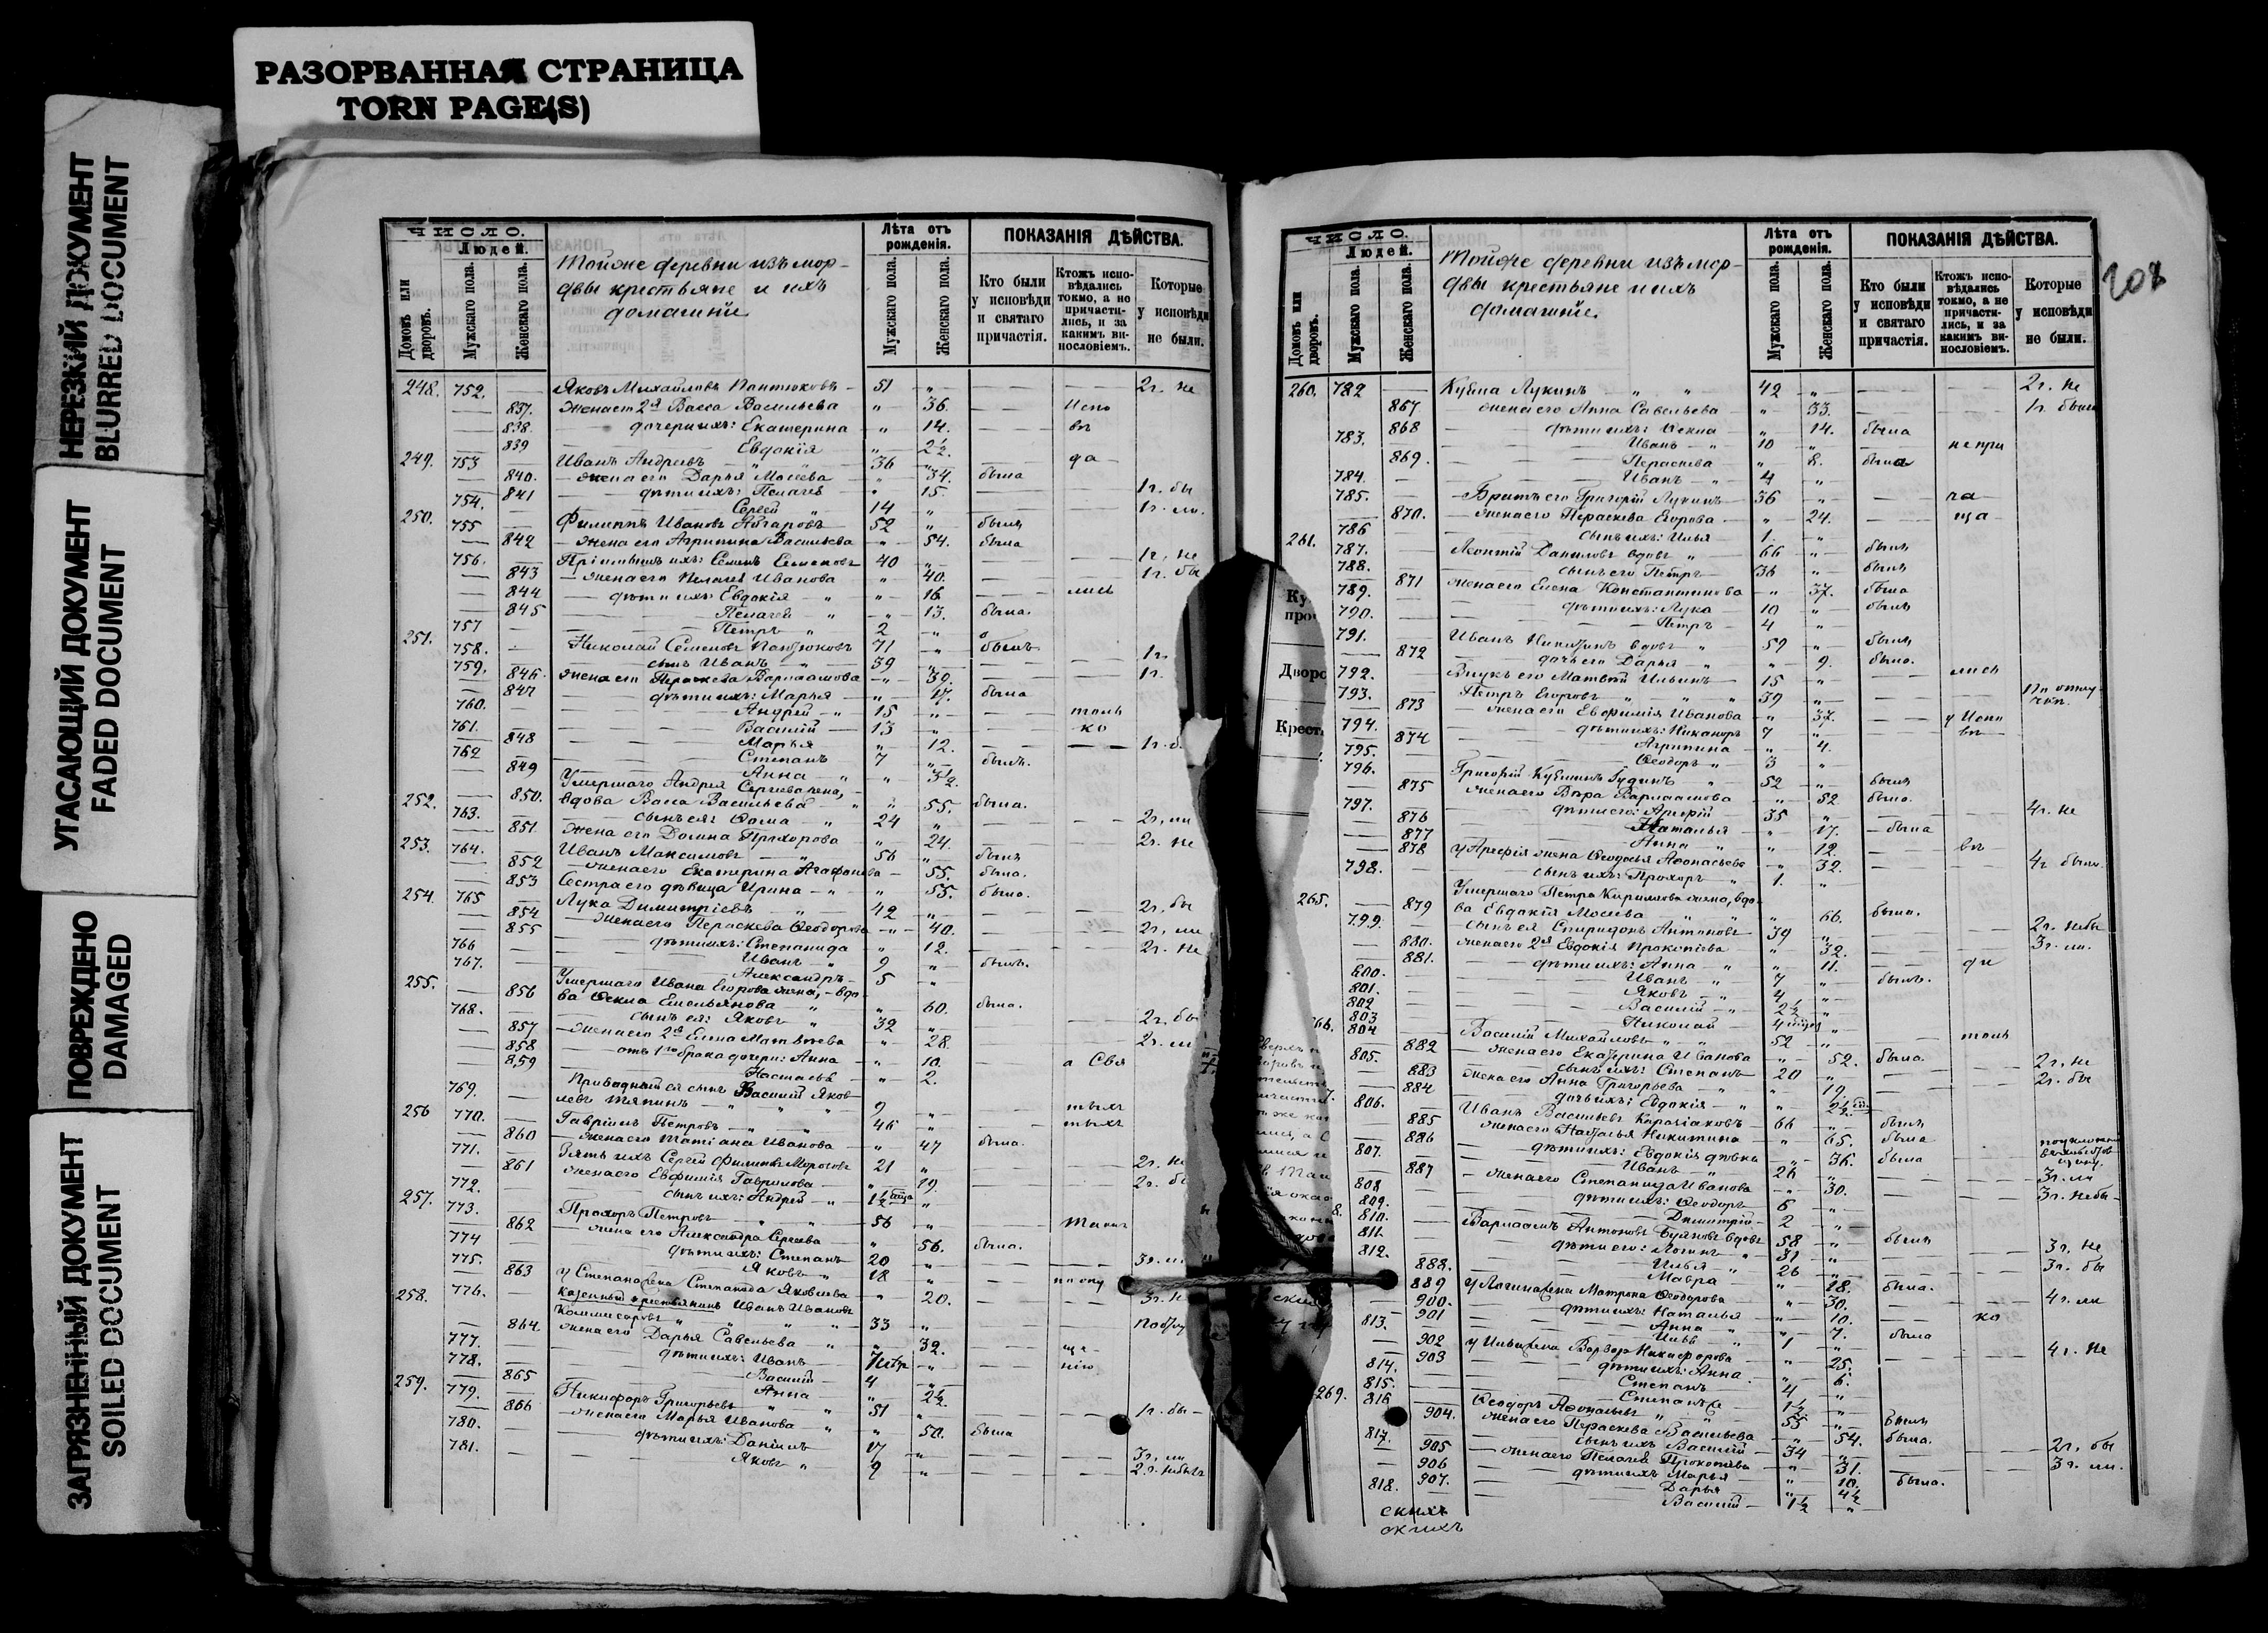 РАЗОРВАННАЯ СТРАНИЦА
TORN PAGE(S)
НЕРЕЗКИЙ ДОКУМЕНТ
BLURRED DOCUMENT
УГАСАЮЩИЙ ДОКУМЕНТ
FADED DOCUMENT
ПОВРЕЖДЕНО
DAMAGED
ЗАГРЯЗНЕННЫЙ ДОКУМЕНТ
SOILED DOCUMENT
ЧИСЛО.
Людей.
Домовъ или дворовъ.
Мужскаго пола.
Женскаго пола.
Тойже деревни изъ мор-
двы крестьяне и ихъ
домашніе
Лѣта отъ рожденія.
Мужскаго пола.
Женскаго пола.
ПОКАЗАНІЯ ДѢЙСТВА.
Кто были у исповѣди и святаго причастія.
Ктожъ испо-вѣдались токмо, а не причасти-лись, и за какимъ ви-нословіемъ.
Которые у исповѣди не были.
248. 752. Яковъ Михайловъ Пантюковъ 51 " 2г. не
837. жена ег 2я Васса Васильева " 36. Испо
838. дочери ихъ: Екатерина " 14. вѣ
839 Евдокія " 2½
249. 753 Иванъ Андреевъ 36 " да
840. жена его Дарья Мосеева " 34. была
841 дѣти ихъ: Пелагея " 15. 1г. бы
754. Сергей 14 " 1г. ли.
250. 755 Филиппъ Ивановъ 52 " былъ
842 жена его Агрипина Васильева " 54. была
756. Семенъ Семеновъ 40 " 1г. не
843 жена его Пелагея Иванова " 40. 1г. бы
844 дѣти ихъ: Евдокія " 16 лись
845 Пелагея " 13. была.
757 Петръ 2 "
251. 758. Николай Семеновъ Пантюковъ 71 " былъ
759. сынъ Иванъ 39 " 1г.
846. жена его Параскева Варлаамова " 39. 1г.
847 дѣти ихъ: Марья " 17. была
760. Андрей 15 " толь
761. Василій 13 " ко
848 Марья " 12. 1г.
762 Степанъ 7 " былъ.
849 Анна " 3½
Умершаго Андрея Сергеева жена,
252. 850. вдова Васса Васильева " 55. была.
763. сынъ ея: Ѳома 24 " 2г. ли
851. жена его Домна Прохорова " 24. 2г. не
253. 764. Иванъ Максимовъ 56 " былъ
852 жена его Екатерина Агафонова 55. была.
853 Сестра его дѣвица Ирина " 55. была.
254. 765 Лука Димитріевъ 42 " 2г. бы
854 жена его Параскева Ѳеодорова " 40. 2г. ли
855 дѣти ихъ: Степанида " 12. 2г. не
766 Иванъ 9 " былъ.
767. Александръ 5 "
255. Умершаго Ивана Егорова жена, вдо-
856 ва Ѳекла Емельянова 60. была.
768. сынъ ея: Яковъ 32 " 2г. бы
857 жена его 2я Елена Матвѣева " 28. 2г. ли
858 отъ 1го брака дочери: Анна " 10. а Свя
859 Настасья " 2.
769. Приводный ея сынъ Василій Яков-
левъ 9 " тыхъ
256 770. Гавріилъ Петровъ 46 " тыхъ
860 жена его Татіана Иванова " 47 была.
771. Зять ихъ Сергей Филиповъ Морозовъ 21 " 2г. не
861 жена его Евфимія Гаврилова " 19. 2г. бы
772. сынъ ихъ: Андрей 1½ года "
257. 773. Прохоръ Петровъ 56 " Таинъ
862 жена его Александра Сергеева " 56. была.
774 дѣти ихъ: Степанъ 20 " 3г. ли
775. Яковъ 18 "
863 у Степана жена Степанида Яковлева " 20. по опу
258. 776. казенный крестьянинъ Иванъ Ивановъ 3г. не
Коммисаровъ 33 "
864 жена его Дарья Савельева " 32.
777. дѣти ихъ: Иванъ 7 " ще-
778. Василій 4 нію
865 Анна " 2½
259. 779. Никифоръ Григорьевъ 51 " 1г. бы
866 жена его Марья Иванова " 50. была
780. дѣти ихъ: Даніилъ 17 " 3г. ли
781. Яковъ 9 " 2г. небыли
208
ЧИСЛО.
Людей.
Домовъ или дворовъ.
Мужскаго пола.
Женскаго пола.
Тойже деревни изъ мор-
двы крестьяне и ихъ
домашніе
Лѣта отъ рожденія.
Мужскаго пола.
Женскаго пола.
ПОКАЗАНІЯ ДѢЙСТВА.
Кто были у исповѣди и святаго причастія.
Ктожъ испо-вѣдались токмо, а не причасти-лись, и за какимъ ви-нословіемъ.
Которые у исповѣди не были.
260. 782 Кузма Лукинъ 42 " 2г. не
867 жена его Анна Савельева " 33. 1г. были
868 дѣти ихъ: Ѳекла " 14. была
783. Иванъ 10 " не при
869. Параскева " 8. была
784. Иванъ 4 "
785. Братъ его Григорій Лукинъ 36 " ча
870. жена его Параскева Егорова " 24. ща
786 сынъ ихъ: Илья 1. "
261. 787. Леонтій Даниловъ вдовъ 66 " былъ
788. сынъ его Петръ 36 " былъ
871 жена его Елена Константинова " 37. была
789. дѣти ихъ: Лука 10 " былъ
790. Петръ 4 "
791. Иванъ Никитинъ вдовъ 59 " былъ
872 дочь его Дарья " 9. была.
792. Внукъ его Матвѣй Ильинъ 15 " лись
793. Петръ Егоровъ 39 " По отлу-
873 жена его Евфимія Иванова " 37. у Испо чкѣ.
794. дѣти ихъ: Никаноръ 7 " вѣ
874 Агрипина " 4.
795. Ѳеодоръ 3 "
796. Григорій Кузминъ Гудинъ 52 " былъ
875 жена его Вѣра Варлаамова " 52 была.
797. дѣти его: Арефій 35 " 4г. не
876 Наталья " 17. была
877 Анна " 12
878 у Арефія жена Ѳеодосья Аѳонасьева " 32. вѣ 4г. были
798. сынъ ихъ: Прохоръ 1. "
265. Умершаго Петра Кирилова жена, вдо-
879 ва Евдокія Мосеева " 66. была.
799. сынъ ея Спиридонъ Антоновъ 39 " 2г. небы
880. жена его 2я Евдокія Прокопіева " 32. 3г. ли.
881. дѣти ихъ: Анна " 11. ди
800. Иванъ 7 " былъ.
801. Яковъ 4 "
802 Василій 2½ "
803 Николай 4 "
804 Василій Михайловъ 52 " толь
882 жена его Екатерина Иванова " 52. была.
805. сынъ ихъ: Степанъ 20 " 2г. не
883 жена его Анна Григорьева " 19. 2г. бы
884 дочь ихъ: Евдокія " 2½
806. Иванъ Васильевъ 66 " былъ
885 жена его Наталья Никитина " 65. была
886 дѣти ихъ: Евдокія дѣвка " 36. была
807. Иванъ 26 " 3г. ли
887 жена его Степанида Иванова " 30. 3г. небы-
808 дѣти ихъ: Ѳеодоръ 6 "
809. Димитрій 2 "
810. Варлаамъ Антоновъ Буяновъ вдовъ 58 " былъ
811. дѣти его: Логинъ 31 " 3г. не
812. Илья 26 " 3г. бы
888. Мавра " 18. была.
889 у Логина жена Матрона Ѳеодорова " 30. 4г. ли
900. дѣти ихъ: Наталья " 10. ко
901 Анна " 7. была
813. Илья 1 "
902 у Ильи жена Варвара Никифорова " 25. 4г. не
903 дѣти ихъ: Анна " 6.
814. Степанъ 4 "
815. Степанъ 1½ "
269. 816 Ѳеодоръ Аѳонасьевъ 55 " былъ
904. жена его Параскева Васильева " 54. была.
817. сынъ ихъ Василій 34 " 2г. бы
905 жена его Пелагея Прокопіева " 31. 3г. ли.
906 дѣти ихъ Марья " 10. была.
907. Дарья " 4½
818. Василій 1½ "
скихъ
скихъ